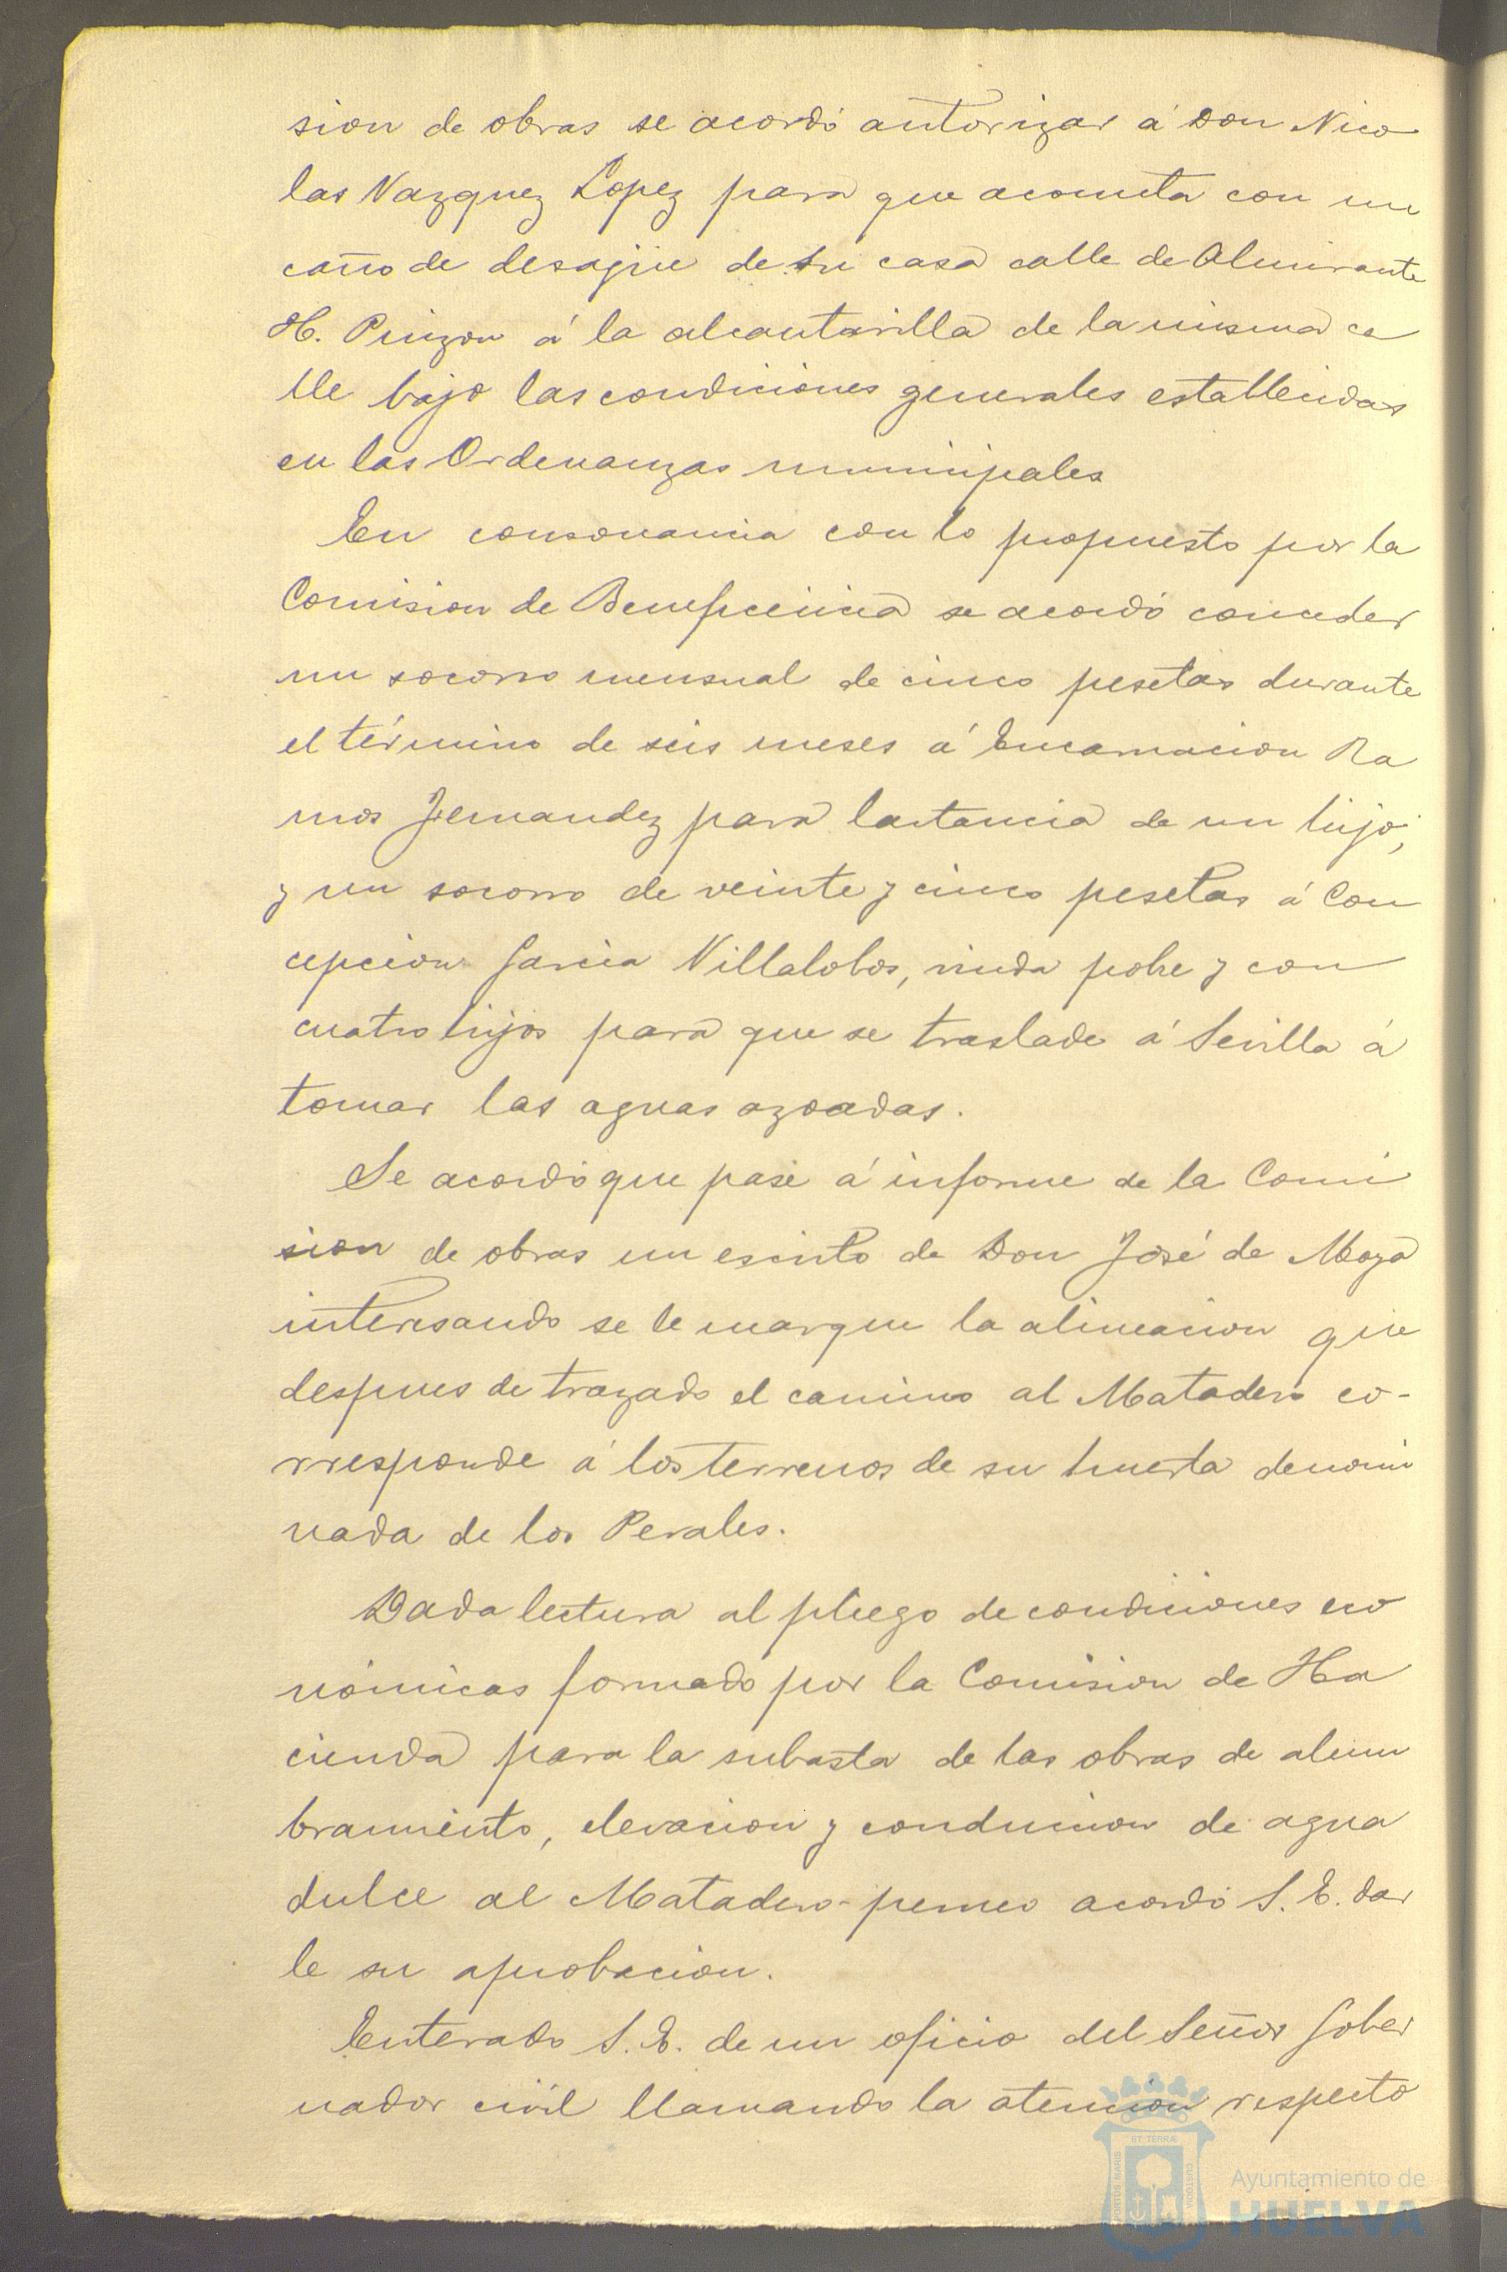 sion de obras se acordó autorizar á Don Nico
las Vazquez Lopez para que acometa con un
caño de desagüe de su casa calle de Almirante
H. Pinzon á la alcantarilla de la misma ca
lle bajo las condiciones generales establecidas
en las Ordenanzas municipales
En consonancia con lo propuesto por la
Comision de Beneficencia se acordó conceder
un socorro mensual de cinco pesetas durante
el término de seis meses á Encarnacion Ra
mos Fernandez para lactancia de un hijo,
y un socorro de veinte y cinco pesetas á Con
cepcion Garcia Villalobos, viuda pobre y con
cuatro hijos para que se traslade á Sevilla á
tomar las aguas azoadas.
Se acordó que pase á informe de la Comi
sion de obras un escrito de Don José de Moya
interesando se le marque la alineacion que
despues de trazado el camino al Matadero co-
rresponde á los terrenos de su huerta denomi
nada de los Perales.
Dada lectura al pliego de condiciones eco
nómicas formado por la Comision de Ha
cienda para la subasta de las obras de alum
bramiento, elevacion y conduccion de agua
dulce al Matadero acordó S. E. dar
le su aprobacion.
Enterado S. E. de un oficio del Señor Gober
nador civil llamando la atencion respecto
PORTUS MARIS ET TERRÆ CUSTODIA
Ayuntamiento de
HUELVA